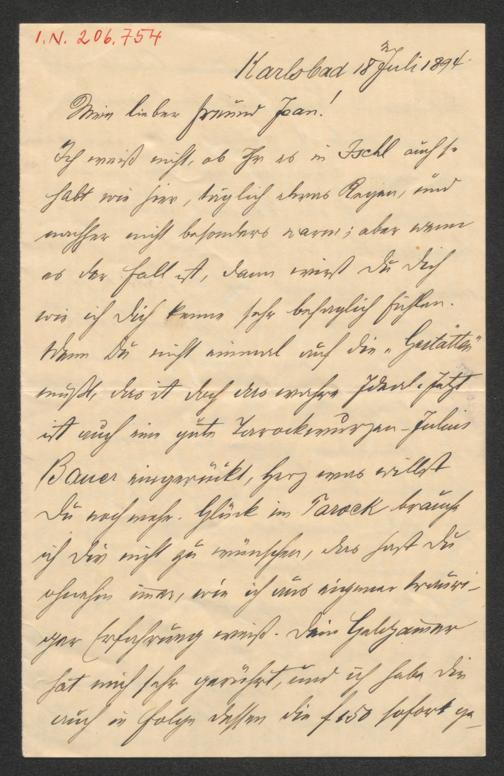 I.N. 206.754
Karlsbad 18 Juli 1894.
Mein lieber Freund Jean!
Ich weiß nicht, ob Ihr es in Ischl auch so
habt wie hier, täglich etwas Regen, und
nachher nicht besonders warm; aber wenn
es der Fall ist, dann wirst Du Dich
wie ich Dich kenne sehr behaglich fühlen.
Wenn Du nicht einmal auf die „Gstätten"
mußt, das ist doch das wahre Ideal. Jetzt
ist auch eine gute Tarockwurzen - Julius
Bauer eingerückt, Herz was willst
Du noch mehr. Glück im Tarock brauche
ich Dir nicht zu wünschen, das hast Du
ohnehin immer, wie ich aus eigener trauri-
ger Erfahrung weiß. Dein Geldjammer
hat mich sehr gerührt, und ich habe Dir
auch in Folge dessen die f 150 sofort ge-